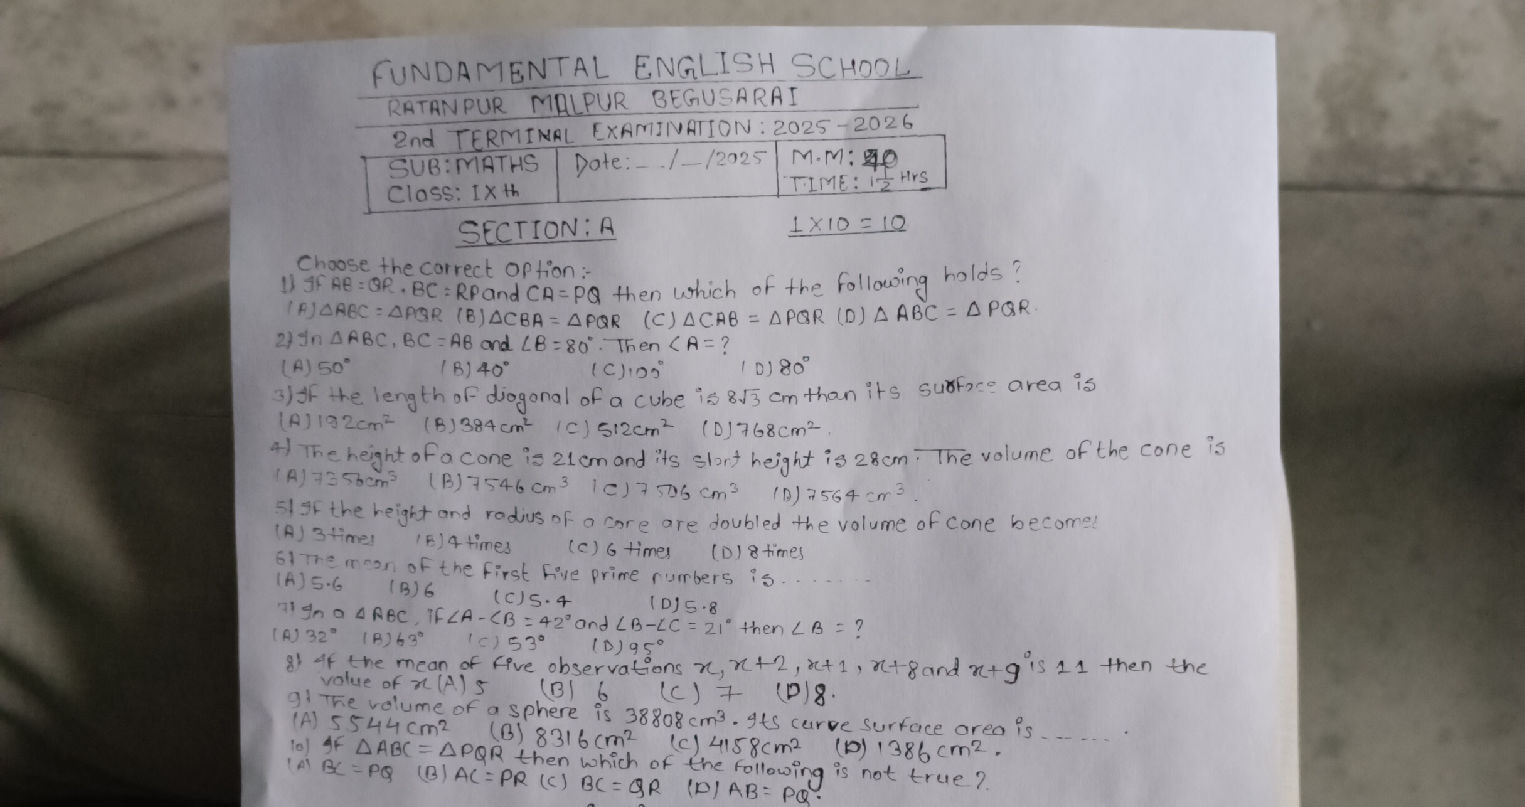 FUNDAMENTAL ENGLISH SCHOOL
RATANPUR MALPUR BEGUSARAI
2nd TERMINAL EXAMINATION: 2025-2026
SUB: MATHS Date: --/--/2025 M.M: 40
Class: IXth TIME: 1½ Hrs
SECTION: A 1X10=10
Choose the correct option:-
1) If AB=QR, BC=RP and CA=PQ then which of the following holds?
(A) ΔABC=ΔPQR (B) ΔCBA=ΔPQR (C) ΔCAB=ΔPQR (D) ΔABC=ΔPQR.
2) In ΔABC, BC=AB and ∠B=80°. Then <A=?
(A) 50° (B) 40° (C) 100° (D) 80°
3) If the length of diagonal of a cube is 8√3 cm than its surface area is
(A) 192cm² (B) 384cm² (C) 512cm² (D) 768cm².
4) The height of a cone is 21cm and its slant height is 28cm. The volume of the cone is
(A) 7356cm³ (B) 7546cm³ (C) 7506cm³ (D) 7564cm³.
5) If the height and radius of a cone are doubled the volume of cone becomes
(A) 3 times (B) 4 times (C) 6 times (D) 8 times
6) The mean of the first five prime numbers is.......
(A) 5.6 (B) 6 (C) 5.4 (D) 5.8
7) In a ΔABC, If ∠A-<B=42° and ∠B-∠C=21° then ∠B=?
(A) 32° (B) 63° (C) 53° (D) 95°
8) If the mean of five observations x, x+2, x+1, x+8 and x+9 is 11 then the
value of x (A) 5 (B) 6 (C) 7 (D) 8.
9) The volume of a sphere is 38808cm³. Its curve surface area is ......
(A) 5544cm² (B) 8316cm² (C) 4158cm² (D) 1386cm².
10) If ΔABC=ΔPQR then which of the following is not true?
(A) BC=PQ (B) AC=PR (C) BC=QR (D) AB=PQ.